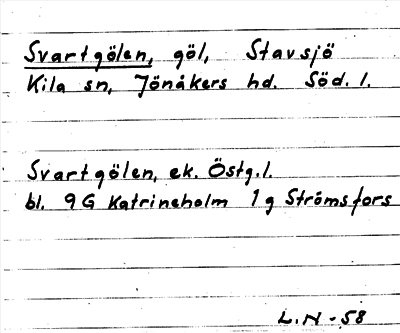 Svartgölen, göl, Stavsjö
Kila sn, Jönåkers hd. Söd. l.
Svartgölen, ek. Östg.l.
bl. 9G Katrineholm 1g Strömsfors
L.N -58